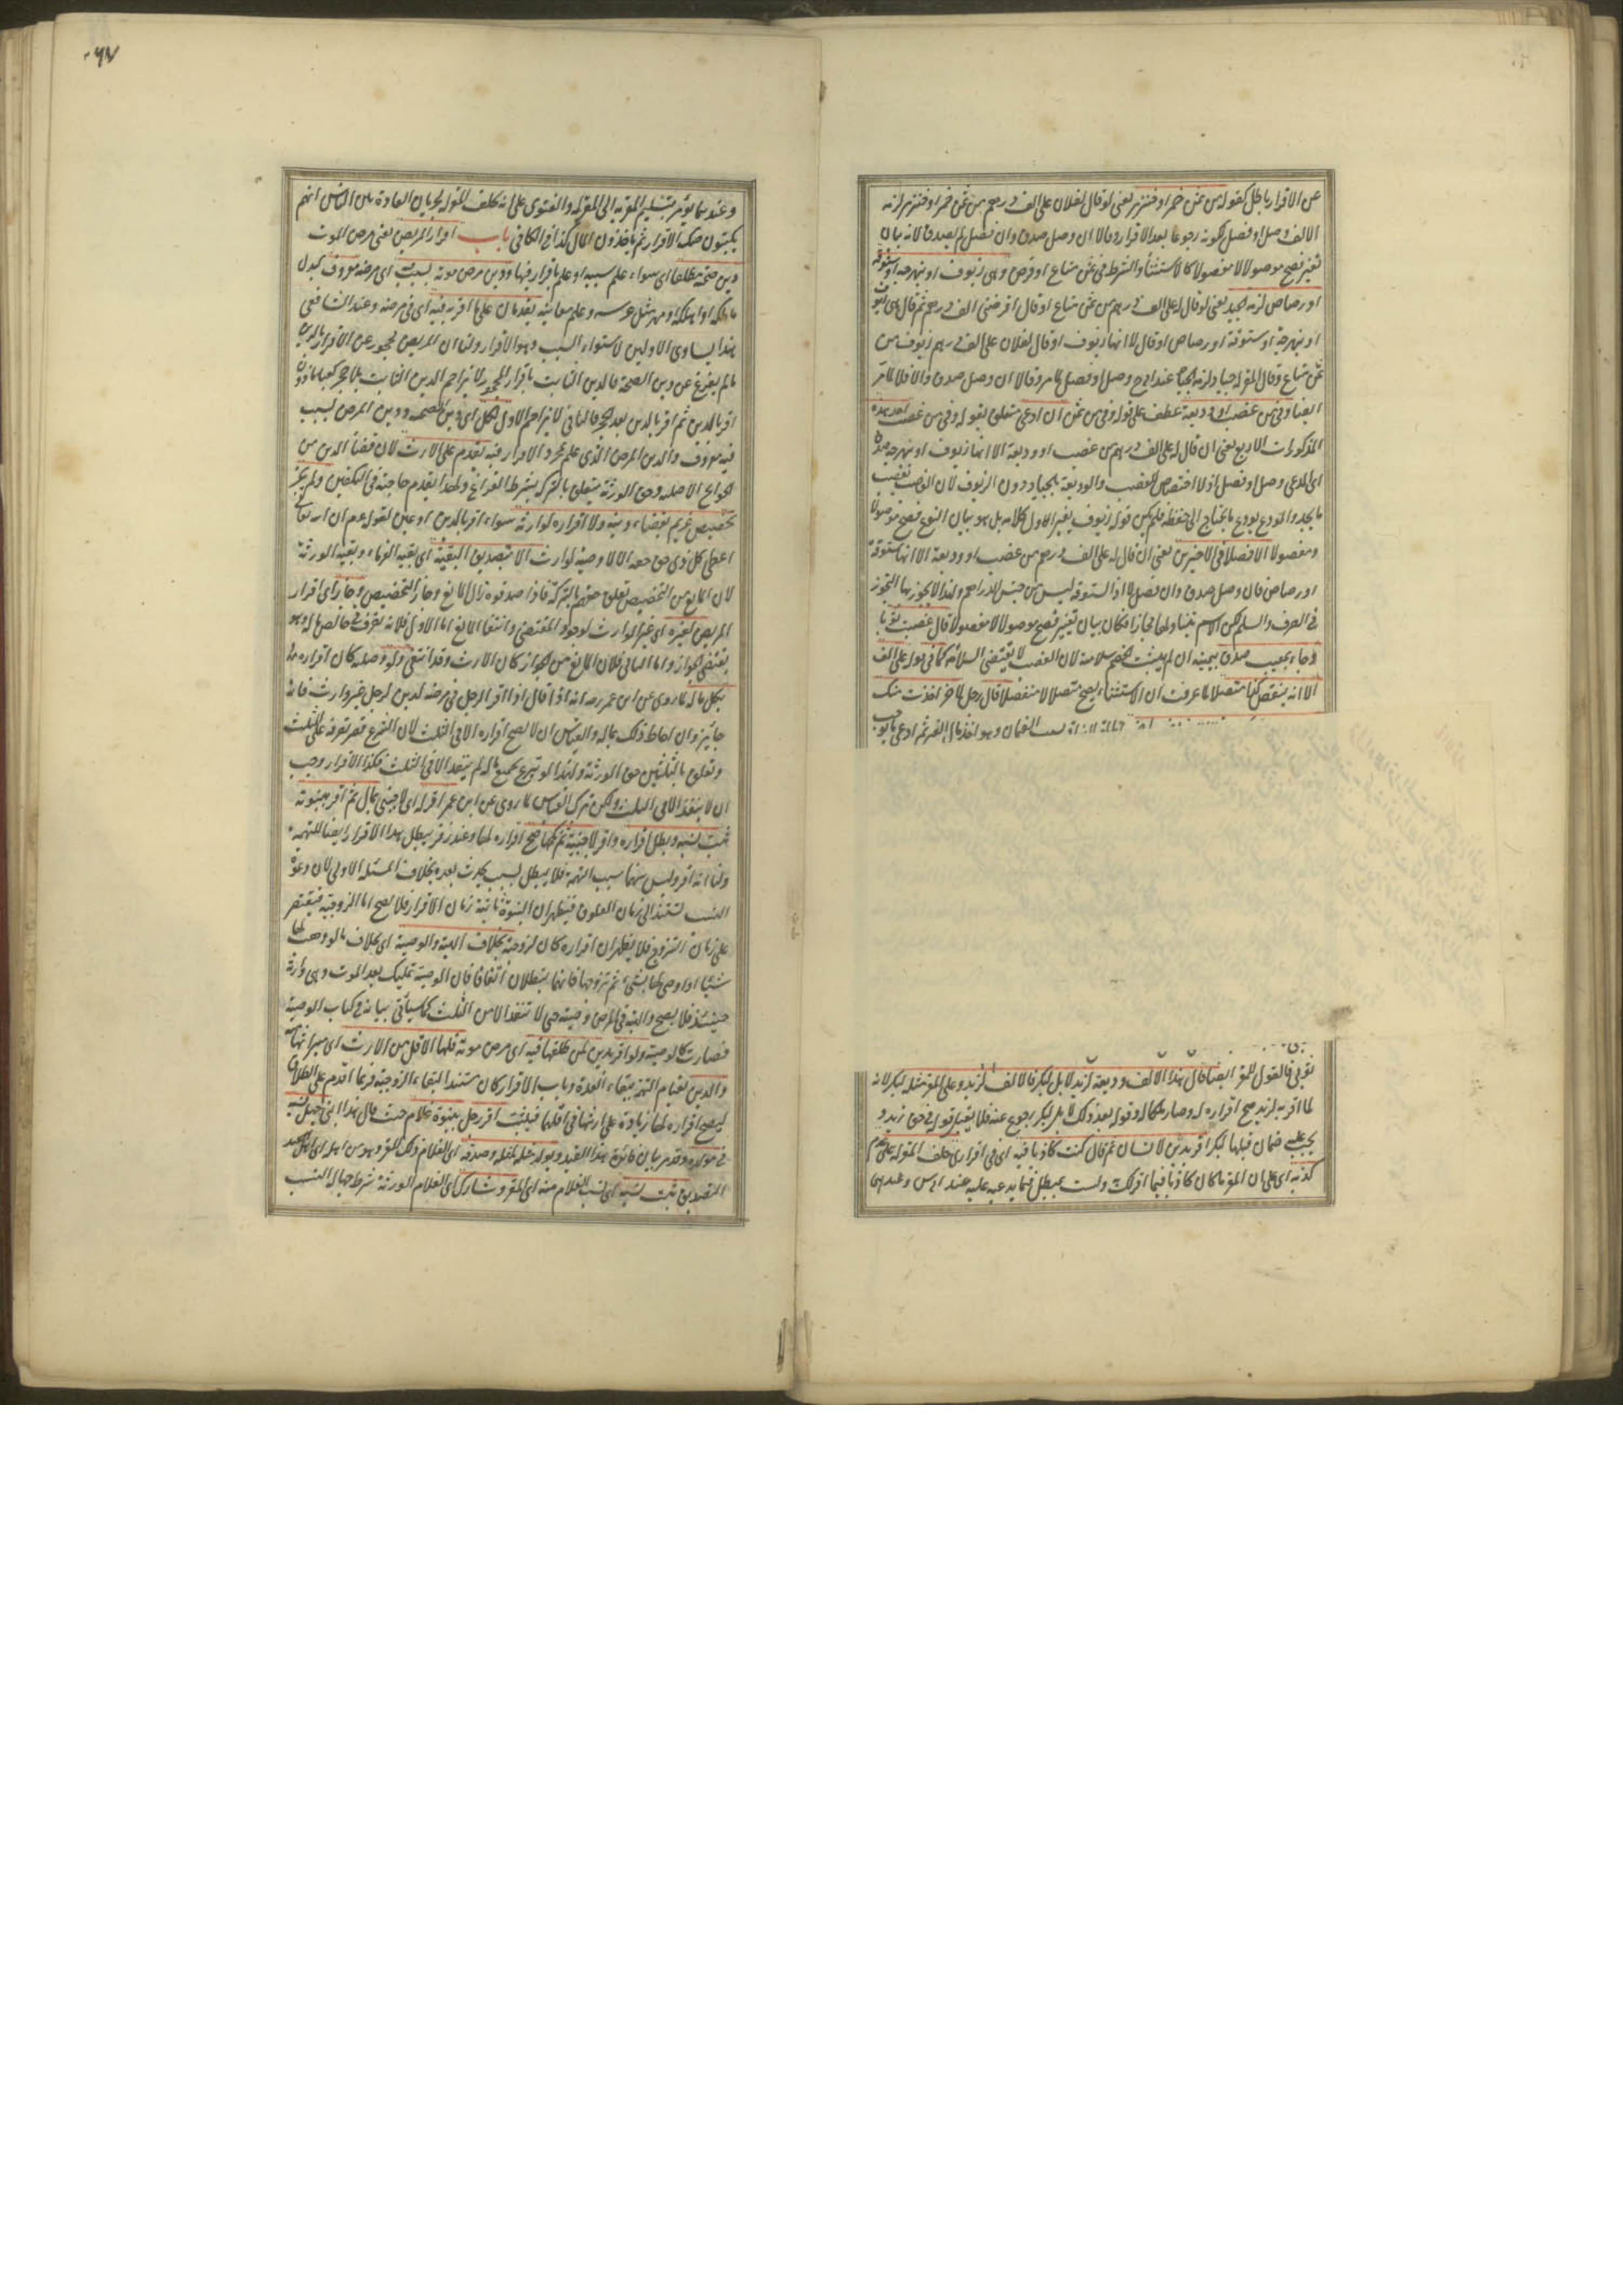 عن الاقرار باطل كقوله من ثمن خمر او خنزير يعنى لو قال لفلان على الف درهم من ثمن خمر او خنزير لزمه
الالف وصل او فصل لكونه رجوعا بعد الاقرار وقالا ان وصل صدق وان فصل لم يصدق لانه بيان
تغيير فيصح موصولا لا مفصولا كالاستثناء والشرط فى ثمن متاع او قرض وهى زيوف او نبهرجة او ستوقة
او رصاص لزمه الجيد يعنى لو قال له على الف درهم من ثمن متاع او قال اقرضنى الف درهم ثم قال هى زيوف
او نبهرجة او ستوقة او رصاص او قال الا انها زيوف او قال لفلان على الف درهم زيوف من
ثمن متاع وقال المقر له جياد لزمه الجياد عند ابى ح وصل او فصل لما مر وقالا ان وصل صدق والا فلا لما مر
ايضا وفى من غصب او وديعة عطف على قوله وفى من ثمن ان ادعى متعلق بقوله وفى من غصب احد هذه
المذكورات الاربع يعنى ان قال له على الف درهم من غصب او وديعة الا انها زيوف او نبهرجة صدق
اى المدعى وصل او فصل اذ لا اختصاص للغصب والوديعة بالجياد دون الزيوف لان الغاصب يغصب
ما يجد والمودع يودع ما يحتاج الى حفظه فلم يكن قوله زيوف تغيير الاول كلامه بل هو بيان النوع فيصح موصولا
ومفصولا الا فصلا فى الاخيرين يعنى ان قال له على الف درهم من غصب او وديعة الا انها ستوقة
او رصاص فان وصل صدق وان فصل لا اذ الستوقة ليس من جنس الدراهم ولهذا لا يجوز بها التجوز
فى الصرف والسلم لكن الاسم يتناولها مجازا فكان بيان تغيير فيصح موصولا لا مفصولا قال غصبت ثوبا
وجاء بمعيب صدق بيمينه ان لم يثبت الخصم سلامته لان الغصب لا يقتضى السلامة كما فى قوله على الف
الا انه ينقص كذا متصلا لما عرفت ان الاستثناء يصح متصلا لا منفصلا قال رجل لاخر اخذت منك
الضمان وهو اخذ مال الغير ثم ادعى ما يوجب
فالقول للمقر ايضا قال هذا الالف وديعة لزيد لا بل لبكر فالالف لزيد وعلى المقر مثله لبكر لانه
لما اقر به لزيد صح اقراره له وصار ملكا له وقوله بعد ذلك لا بل لبكر رجوع عنه فلا يقبل قوله فى حق زيد و
يجب عليه ضمان مثلها لبكر اقر بدين لانسان ثم قال كنت كاذبا فيه اى فى اقرارى حلف المقر له على عدم
كذبه اى على ان المقر ما كان كاذبا فيما اقر لك ولست بمبطل فيما يدعيه عليه عند ابى س وعندهما
وعندهما يؤمر بتسليم المقر به الى المقر له والفتوى على انه يحلف المقر له لجريان العادة بين الناس انهم
يكتبون صك الاقرار ثم ياخذون المال كذا فى الكافى باب اقرار المريض يعنى مرض الموت
دين صحته مطلقا اى سواء علم سببه او علم باقرار فيها ودين مرض موته بسبب اى مرضه معروف كبدل
ما ملكه او اهلكه ومهر مثل عرسه وعلم معاينة يقدمان على ما اقر به فيه اى فى مرضه وعند الشافعى
هذا يساوى الاولين لاستواء السبب وهو الاقرار ولنا ان المريض محجور عن الاقرار بالدين
ما لم يفرغ عن دين الصحة فالدين الثابت باقرار المحجور لا يزاحم الدين الثابت بلا حجر كعبد ماذون
اقر بالدين ثم اقر بالدين بعد الحجر فالثانى لا يزاحم الاول الكل اى دين الصحة ودين المرض بسبب
فيه معروف والدين المرض الذى علم بمجرد الاقرار فيه تقدم على الارث لان قضاء الدين من
الحوائج الاصلية وحق الورثة يتعلق بالتركة بشرط الفراغ ولهذا يقدم حاجته فى التكفين ولم يجز
تخصيص غريم بقضاء دينه ولا اقراره لوارثه سواء اقر بالدين او عين لقوله عم ان الله تعالى
اعطى كل ذى حق حقه الا لا وصية لوارث الا بتصديق البقية اى بقية الغرماء وبقية الورثة
لان المانع من التخصيص تعلق حقهم بالتركة فاذا صدقوه زال المانع وجاز التخصيص وجاز اى اقرار
المريض لغيره اى غير الوارث لوجود المقتضى وانتفاء المانع اما الاول فلانه تصرف فى خالص ماله وهو
يقتضى الجواز واما الثانى فلان المانع من الجواز كان الارث وقد انتفى ولو وصلية كان اقراره هذا
بكل ماله لما روى عن ابن عمر رضه انه قال اذا اقر الرجل فى مرضه لدين لرجل غير وارث فانه
جائز وان احاط ذلك بماله والقياس ان لا يصح اقراره الا فى الثلث لان الشرع قصر تصرفه على الثلث
وتعلق بالثلثين حق الورثة ولهذا لو تبرع بجميع ماله لم ينفذ الا فى الثلث فكذا الاقرار وجب
ان لا ينفذ الا فى الثلث ولكن ترك القياس لما روى عن ابن عمر اقر له اى لاجنبى بمال ثم اقر ببنوته
ثبت نسبه وبطل اقراره واقر لاجنبية ثم نكحها صح اقراره لها وعند زفر يبطل هذا الاقرار ايضا للتهمة
ولنا انه اقر وليس بينهما سبب التهمة فلا يبطل بسبب يحدث بعده بخلاف المسئلة الاولى لان دعوة
النسب تستند الى زمان العلوق فيظهر ان البنوة ثابتة زمان الاقرار فلا يصح اما الزوجية فيقتصر
على زمان التزوج فلا يظهر ان اقراره كان لزوجته بخلاف الهبة والوصية اى بخلاف ما لو وهب لها
شيئا او اوصى لها بشئ ثم تزوجها فانهما يبطلان اتفاقا فان الوصية تمليك بعد الموت وهى وارثة
حينئذ فلا يصح والهبة فى المرض وصية حتى لا تنفذ الا من الثلث كما سيأتى بيانه فى كتاب الوصية
فصارت كالوصية ولو اقر بدين لمن طلقها فيه اى مرض موته فلها الاقل من الارث اى ميراثها منه
والدين لقيام التهمة ببقاء العدة وباب الاقرار كان منسدا لبقاء الزوجية فربما اقدم على الطلاق
ليصح اقراره لها زيادة على ارثها فى اقلهما فيثبت اقر رجل ببنوة غلام حيث قال هذا ابنى جهل نسبه
فى مولده وقد مر بيان فائدة هذا القيد ويولد مثله لمثله وصدقه اى الغلام ذلك المقر وهو من اهله اى اهل
التصديق ثبت نسبه اى نسب الغلام منه اى المقر وشارك اى الغلام الورثة شرط جهالة النسب